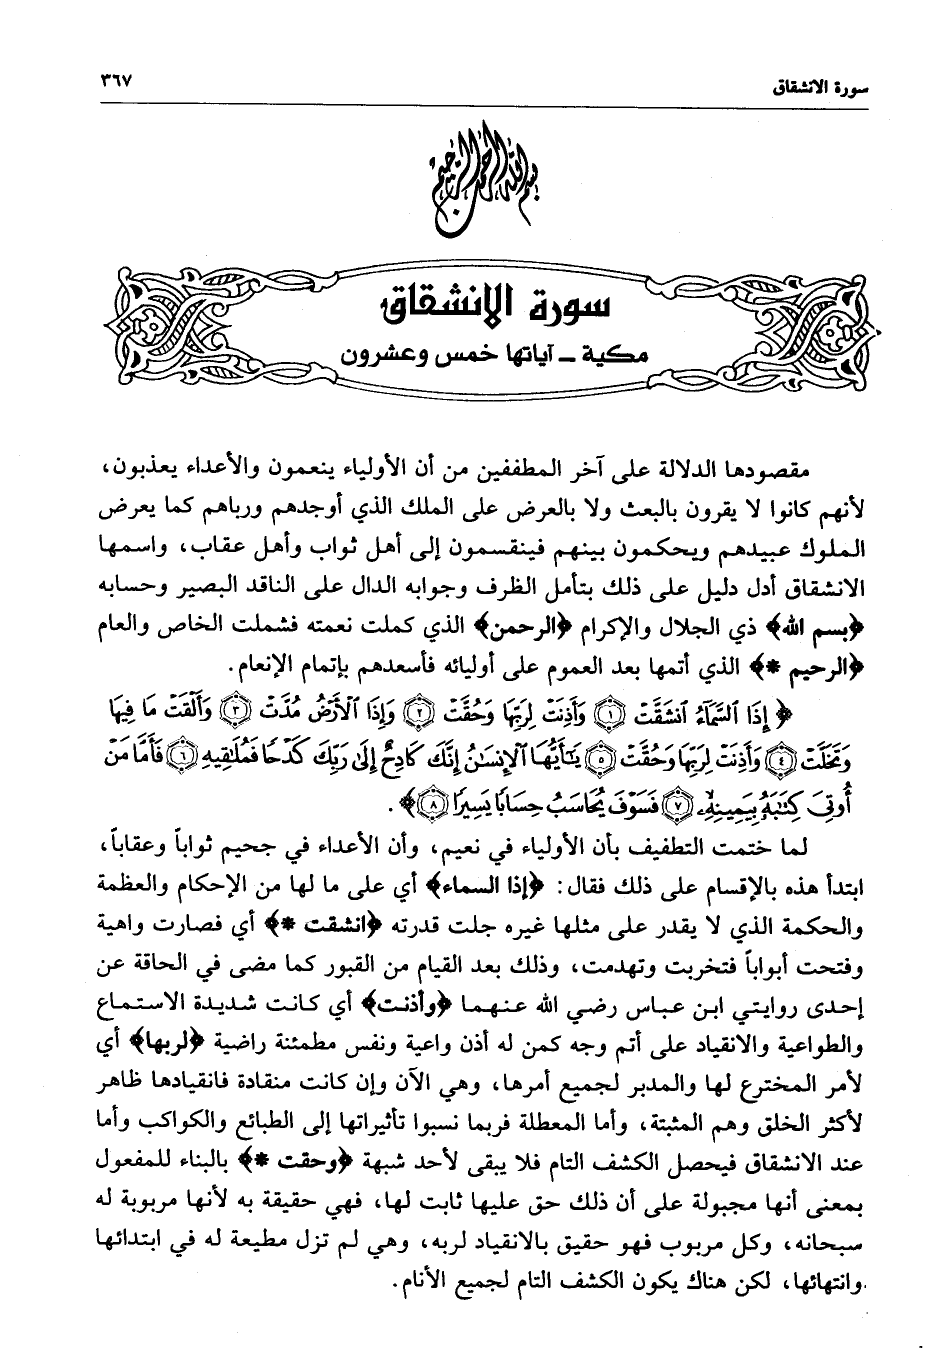 سورة الانشقاق
٣٦٧
بسم الله الرحمن الرحيم
سورة الانشقاق
مكية - آياتها خمس وعشرون
مقصودها الدلالة على آخر المطففين من أن الأولياء ينعمون والأعداء يعذبون،
لأنهم كانوا لا يقرون بالبعث ولا بالعرض على الملك الذي أوجدهم ورباهم كما يعرض
الملوك عبيدهم ويحكمون بينهم فينقسمون إلى أهل ثواب وأهل عقاب، واسمها
الانشقاق أدل دليل على ذلك بتأمل الظرف وجوابه الدال على الناقد البصير وحسابه
﴿بسم الله﴾ ذي الجلال والإكرام ﴿الرحمن﴾ الذي كملت نعمته فشملت الخاص والعام
﴿الرحيم *﴾ الذي أتمها بعد العموم على أوليائه فأسعدهم بإتمام الإنعام.
﴿ إِذَا ٱلسَّمَآءُ ٱنشَقَّتْ ۝١ وَأَذِنَتْ لِرَبِّهَا وَحُقَّتْ ۝٢ وَإِذَا ٱلْأَرْضُ مُدَّتْ ۝٣ وَأَلْقَتْ مَا فِيهَا
وَتَخَلَّتْ ۝٤ وَأَذِنَتْ لِرَبِّهَا وَحُقَّتْ ۝٥ يَٰٓأَيُّهَا ٱلْإِنسَٰنُ إِنَّكَ كَادِحٌ إِلَىٰ رَبِّكَ كَدْحًا فَمُلَٰقِيهِ ۝٦ فَأَمَّا مَنْ
أُوتِىَ كِتَٰبَهُۥ بِيَمِينِهِۦ ۝٧ فَسَوْفَ يُحَاسَبُ حِسَابًا يَسِيرًا ۝٨﴾.
لما ختمت التطفيف بأن الأولياء في نعيم، وأن الأعداء في جحيم ثواباً وعقاباً،
ابتدأ هذه بالإقسام على ذلك فقال: ﴿إذا السماء﴾ أي على ما لها من الإحكام والعظمة
والحكمة الذي لا يقدر على مثلها غيره جلت قدرته ﴿انشقت *﴾ أي فصارت واهية
وفتحت أبواباً فتخربت وتهدمت، وذلك بعد القيام من القبور كما مضى في الحاقة عن
إحدى روايتي ابن عباس رضي الله عنهما ﴿وأذنت﴾ أي كانت شديدة الاستماع
والطواعية والانقياد على أتم وجه كمن له أذن واعية ونفس مطمئنة راضية ﴿لربها﴾ أي
لأمر المخترع لها والمدبر لجميع أمرها، وهي الآن وإن كانت منقادة فانقيادها ظاهر
لأكثر الخلق وهم المثبتة، وأما المعطلة فربما نسبوا تأثيراتها إلى الطبائع والكواكب وأما
عند الانشقاق فيحصل الكشف التام فلا يبقى لأحد شبهة ﴿وحقت *﴾ بالبناء للمفعول
بمعنى أنها مجبولة على أن ذلك حق عليها ثابت لها، فهي حقيقة به لأنها مربوبة له
سبحانه، وكل مربوب فهو حقيق بالانقياد لربه، وهي لم تزل مطيعة له في ابتدائها
وانتهائها، لكن هناك يكون الكشف التام لجميع الأنام.